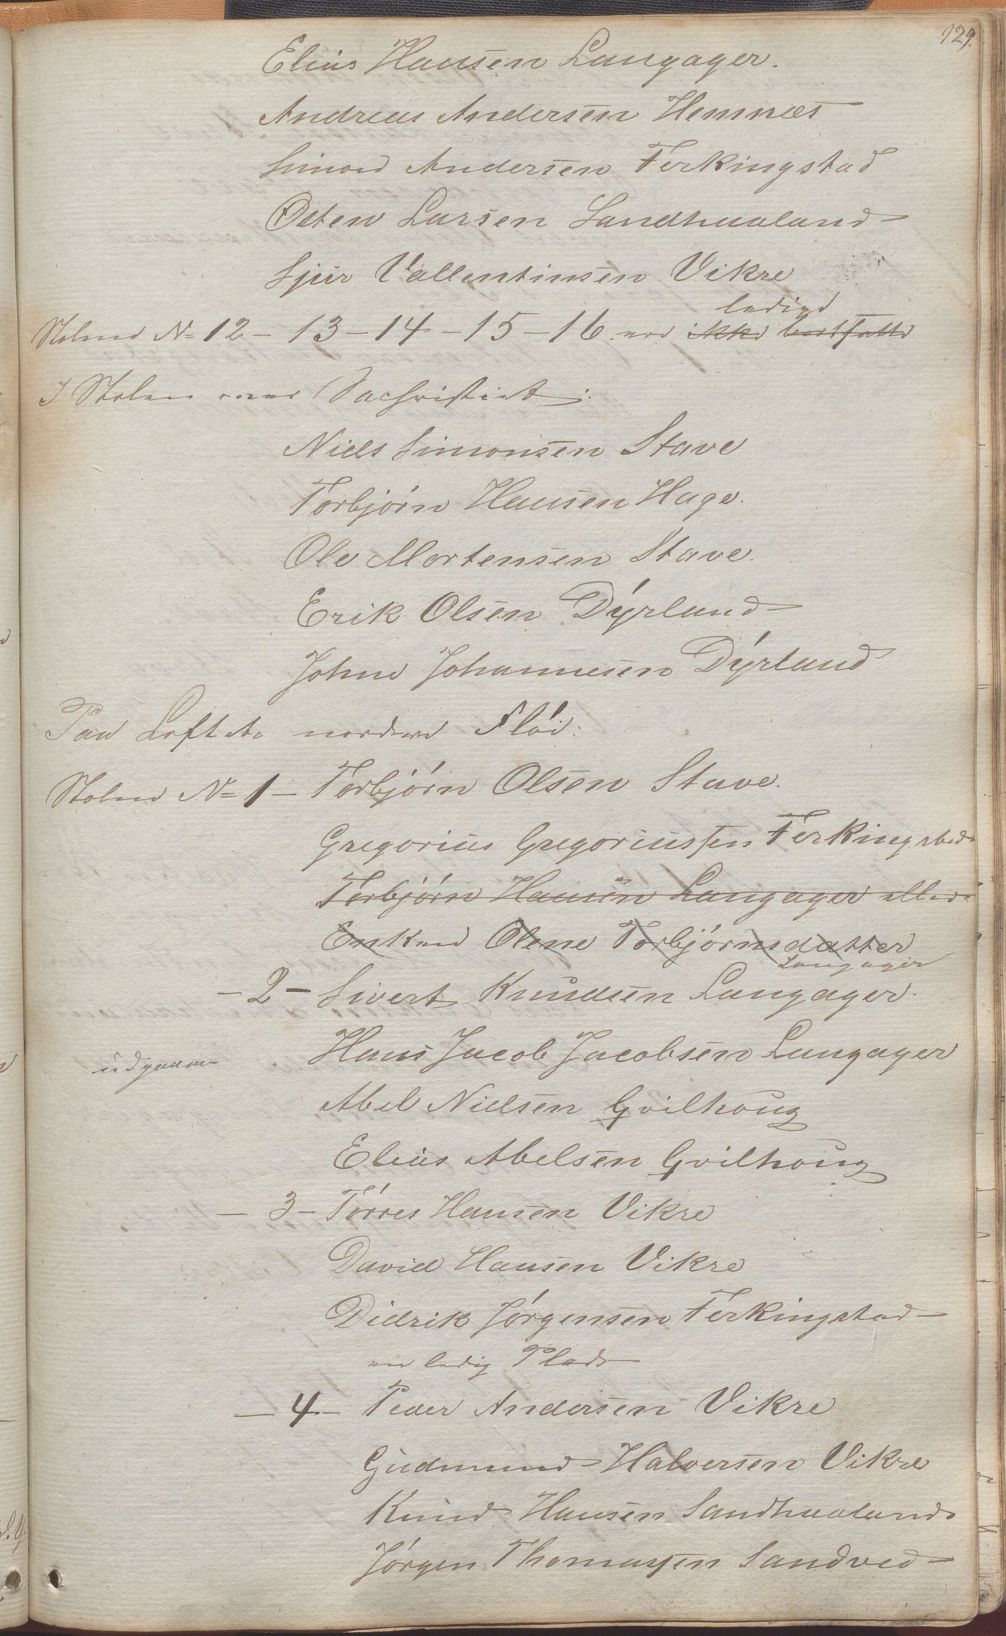 129.
Elias Hansen Langager.
Andreas Andersen Hemnæs
Simon Andersen Ferkingstad
Osten Larsen Sandhaaland
Sjur Vallentinsen Vikre
ledige
Stolene No 12 - 13 - 14 - 15 - 16 ere ikke bortfatte
I Stolen Sachristiet:
Niels Simonsen Stave
Torbjørn Hansen Hage.
Ole Mortensen Stave.
Erik Olsen Dýrland
John Johannesen Dýrland
Paa Loftets nordre Fløi:
Stolen No 1 - Torbjørn Olsen Stave.
Gregorius Gregoriussen Ferkingstad
Torbjørn Hansen Langager eller
Enken Olene Torbjørnsdatter
Langager
- 2 - Sivert Knudsen Langager.
Hans Jacob Jacobsen Langager
udgaaer
Abel Nielsen Gvilhoug
Elias Abelsen Gvilhoug
- 3 - Tórres Hansen Vikre
David Hansen Vikre
Didrik Jørgensen Ferkingstad
en ledig Plads
- 4 - Peder Andersen Vikre
Gudmund Halversen Vikre
Knud Hansen Sandhaaland
Jørgen Thomassen Sandved